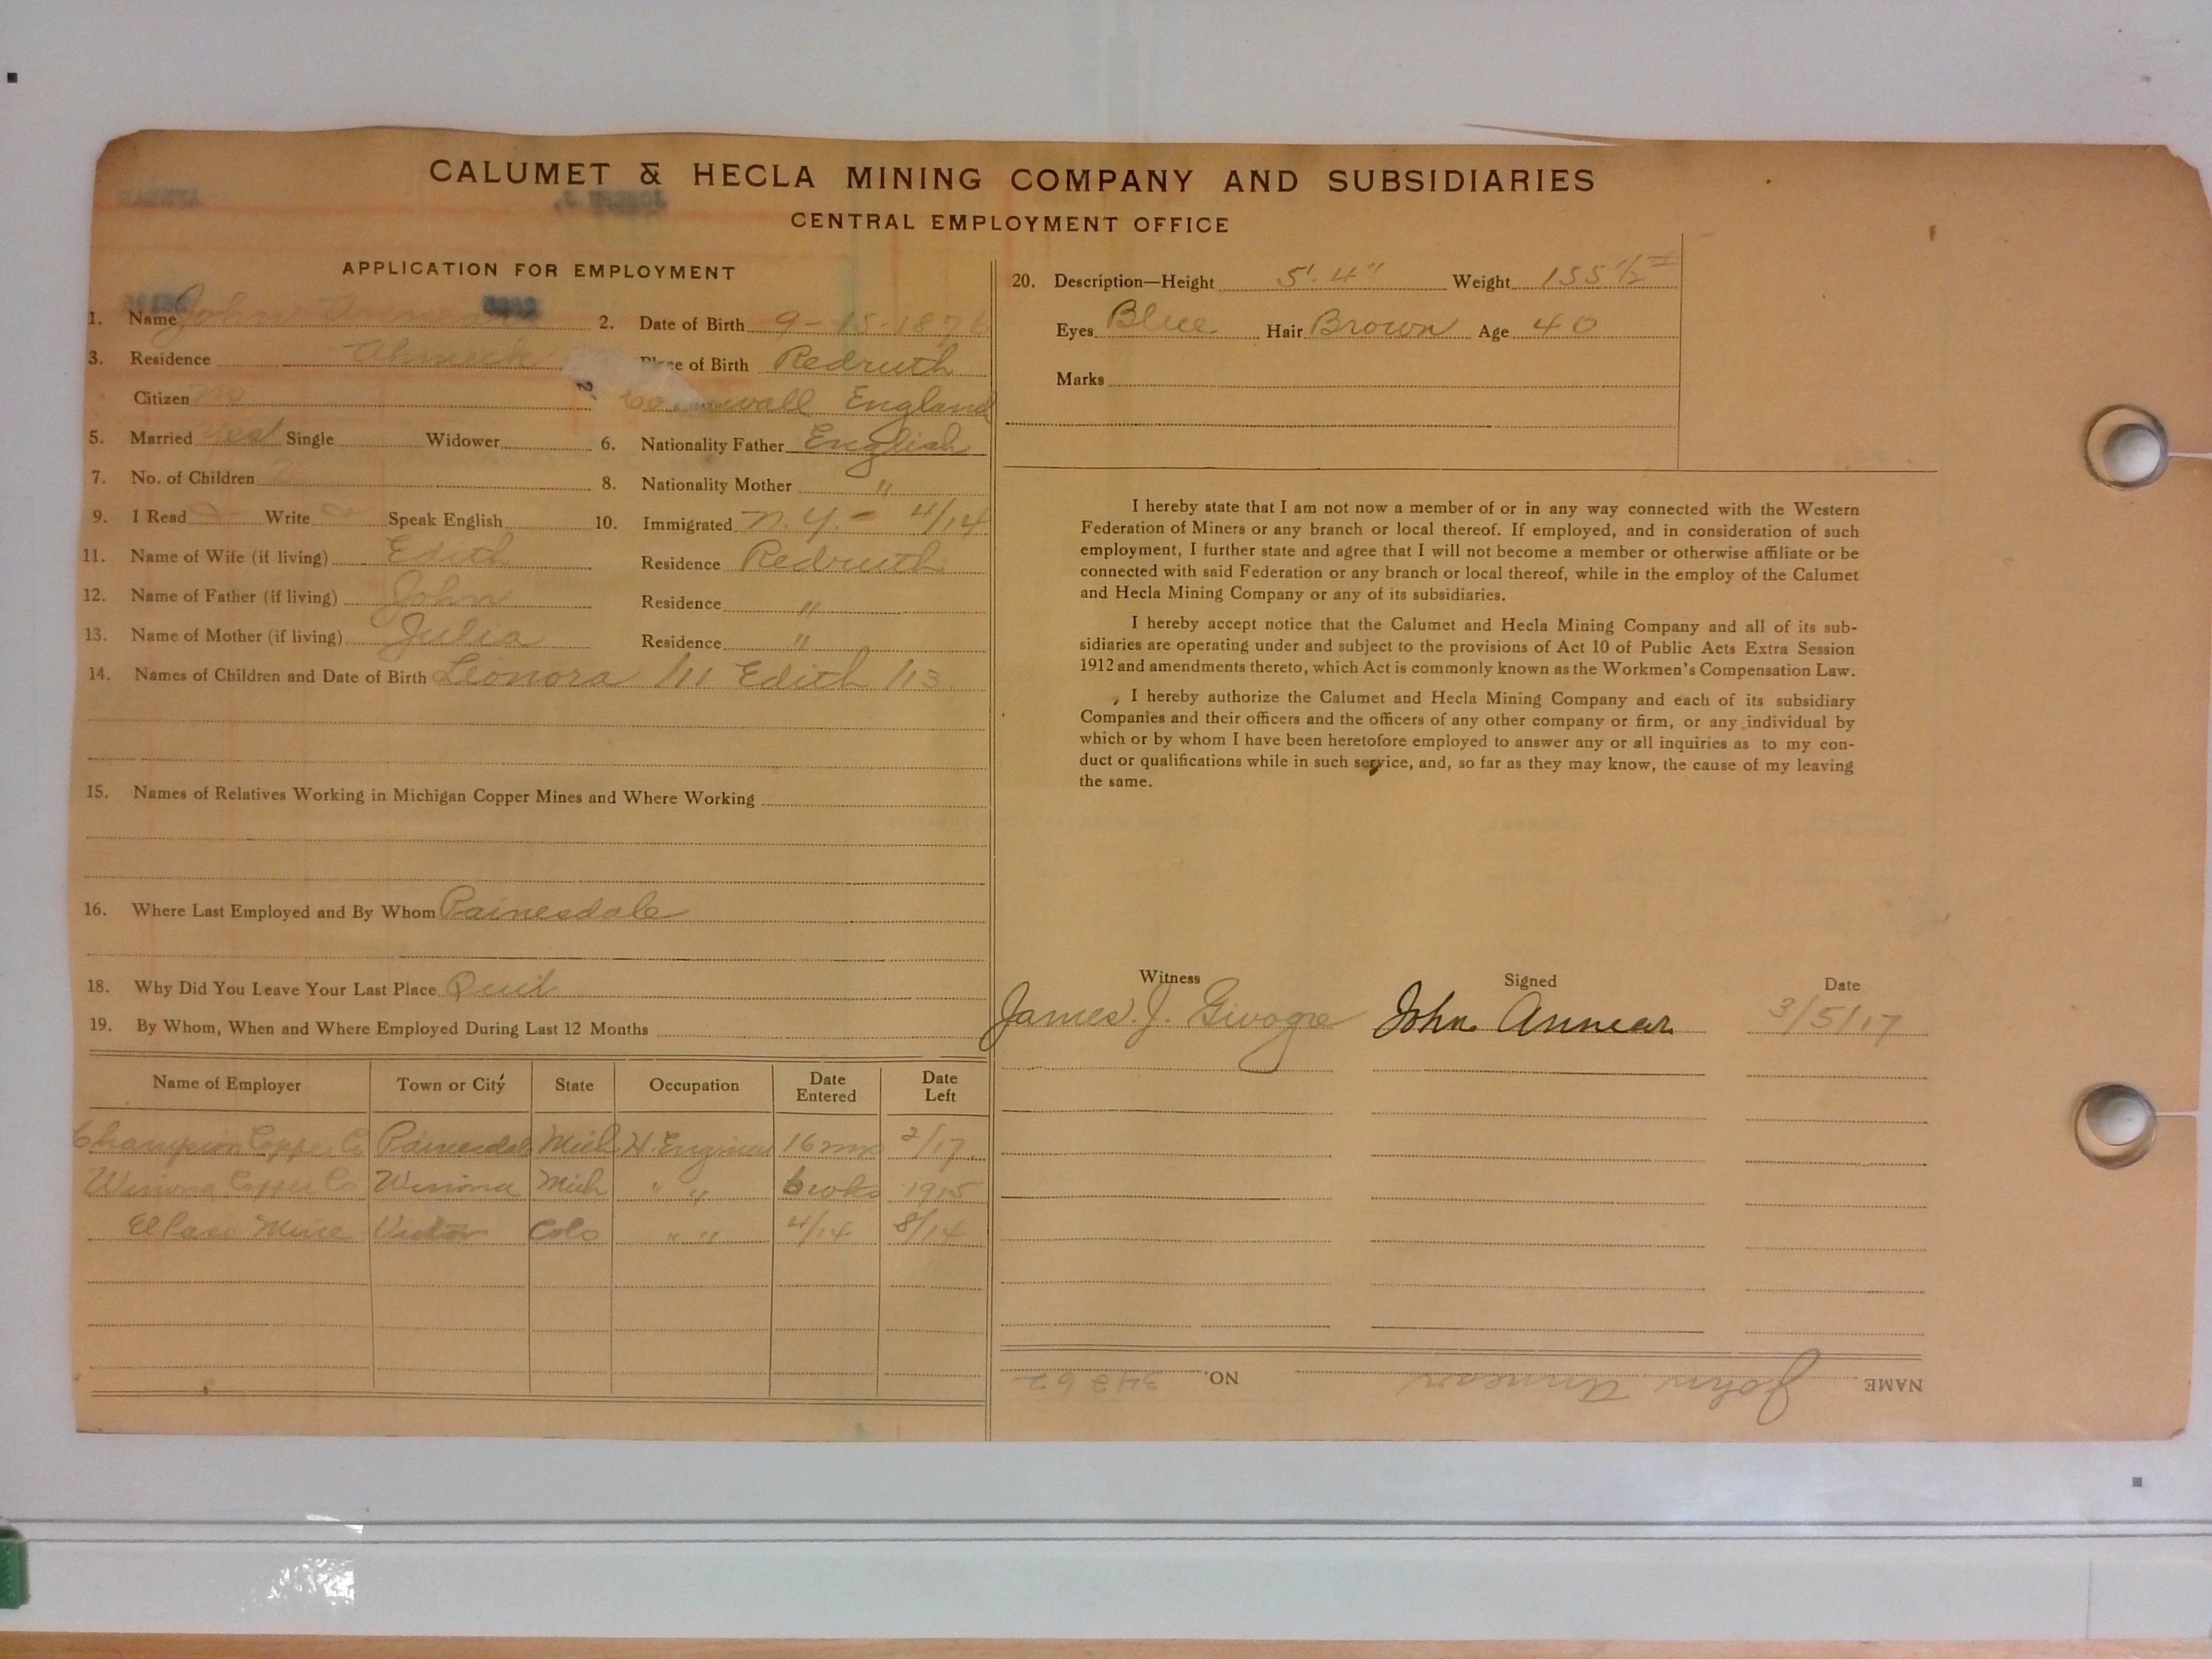 CALUMET & HECLA MINING COMPANY AND SUBSIDIARIES
CENTRAL EMPLOYMENT OFFICE
APPLICATION FOR EMPLOYMENT
1. Name John Annear 2. Date of Birth 9-15-1876
3. Residence Ahmeek Place of Birth Redruth
Citizen No England
5. Married Yes Single Widower 6. Nationality Father English
7. No. of Children 2 8. Nationality Mother "
9. I Read Write Speak English 10. Immigrated N.Y. - 4/14
11. Name of Wife (if living) Edith Residence Redruth
12. Name of Father (if living) John Residence "
13. Name of Mother (if living) Julia Residence "
14. Names of Children and Date of Birth Leonora /11 Edith /13
15. Names of Relatives Working in Michigan Copper Mines and Where Working
16. Where Last Employed and By Whom Painesdale
18. Why Did You Leave Your Last Place Quit
19. By Whom, When and Where Employed During Last 12 Months
Name of Employer Town or City State Occupation Date Entered Date Left
Champion Copper Co Painesdale Mich H. Engineer 16 mo 2/17
Winona Copper Co Winona Mich " " 1915
El Paso Mine Victor Colo " " 4/14 8/14
20. Description—Height 5'.4" Weight 155 1/2 #
Eyes Blue Hair Brown Age 40
Marks
I hereby state that I am not now a member of or in any way connected with the Western
Federation of Miners or any branch or local thereof. If employed, and in consideration of such
employment, I further state and agree that I will not become a member or otherwise affiliate or be
connected with said Federation or any branch or local thereof, while in the employ of the Calumet
and Hecla Mining Company or any of its subsidiaries.
I hereby accept notice that the Calumet and Hecla Mining Company and all of its sub-
sidiaries are operating under and subject to the provisions of Act 10 of Public Acts Extra Session
1912 and amendments thereto, which Act is commonly known as the Workmen's Compensation Law.
I hereby authorize the Calumet and Hecla Mining Company and each of its subsidiary
Companies and their officers and the officers of any other company or firm, or any individual by
which or by whom I have been heretofore employed to answer any or all inquiries as to my con-
duct or qualifications while in such service, and, so far as they may know, the cause of my leaving
the same.
Witness Signed Date
James J. John Annear 3/5/17
NAME John Annear NO.